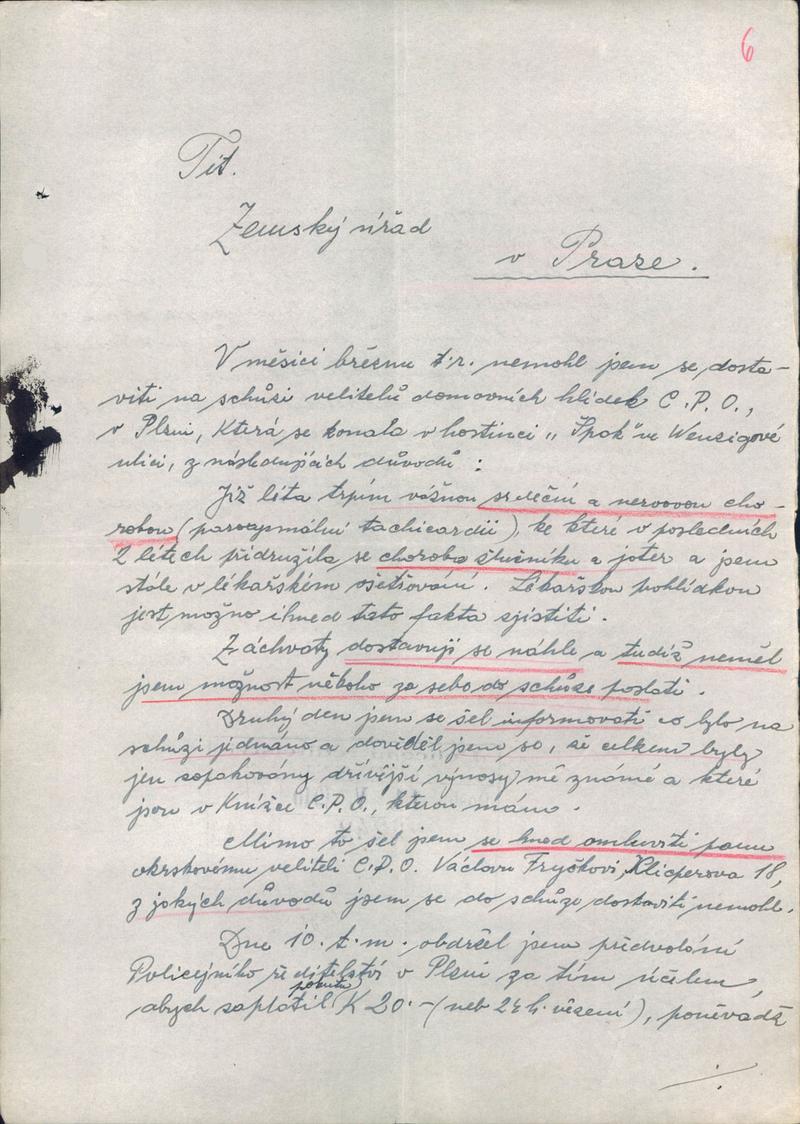 6
Tit.
Zemský úřad
v Praze.
V měsíci březnu t.r. nemohl jem se dosta-
viti na schůzi velitelů domovních hlídek C.P.O.,
v Plzni, která se konala v hostinci „Špok" ve Wenzigové
ulici, z následujících důvodů :
Již léta trpím vážnou srdeční a nervovou cho-
robou (paroxysmální tachicardii), ke které v posledních
2 létech přidružila se choroba žlučníku a jater a jsem
stále v lékařském ošetřování. Lékařskou pohlídkou
jest možno ihned tato fakta zjistiti.
Záchvaty dostavují se náhle a tudíž neměl
jsem možnost někoho za sebe do schůze poslati.
Druhý den jsem se šel informovati co bylo na
schůzi jednáno a dověděl jsem se, že celkem byly
jen zopakovány dřívější výnosy mě známé a které
jsou v Knížce C.P.O., kterou mám.
Mimo to šel jsem se hned omluviti panu
okrskovému veliteli C.P.O. Václavu Fryčkovi, Klicperova 18,
z jakých důvodů jsem se do schůze dostaviti nemohl.
Dne 10. t.m. obdržel jsem předvolání
Policejního ředitelství v Plzni za tím účelem,
abych zaplatil pokutu K 20.- (neb 24 h. vězení), poněvadž
./.